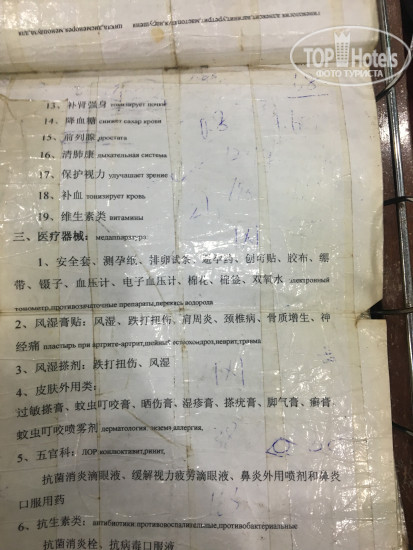 TOP Hotels
ФОТО ТУРИСТА
13、补肾强身 тонизирует почки
14、降血糖 снижает сахар крови
15、前列腺 простата
16、消肺康 дыхательная система
17、保护视力 улучшает зрение
18、补血 тонизирует кровь
19、维生素类 витамины
三、医疗器械：
1、安全套、测孕纸、排卵试纸、避孕药、创可贴、胶布、绷
带、镊子、血压计、电子血压计、棉花、棉签、双氧水 электронный
тонометр,противозачаточные препараты,перекись водорода
2、风湿膏贴：风湿、跌打扭伤、肩周炎、颈椎病、骨质增生、神
经痛 пластырь при артрите-артрит,шейный остеохондроз,неврит,травма
3、风湿搽剂：跌打扭伤、风湿
4、皮肤外用类：
过敏搽膏、蚊虫叮咬膏、晒伤膏、湿疹膏、搽疣膏、脚气膏、癣膏、
蚊虫叮咬喷雾剂 дерматология экзема,аллергия,
5、五官科：ЛОР конъюктивит,ринит,
抗菌消炎滴眼液、缓解视力疲劳滴眼液、鼻炎外用喷剂和鼻炎
口服用药
6、抗生素类：антибиотики:противовоспалительные,противобактериальные
抗菌消炎栓、抗病毒口服液